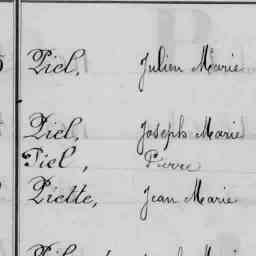 Piel, Julien Marie
Piel, Joseph Marie
Piel, Pierre
Piette, Jean Marie